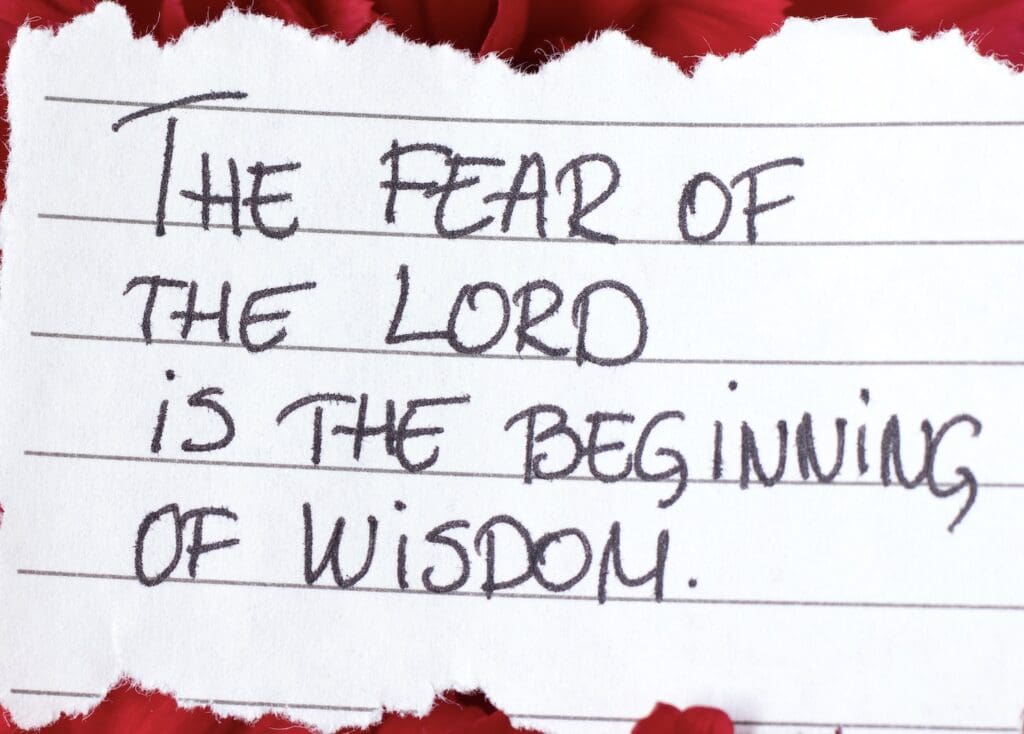 THE FEAR OF
THE LORD
iS THE BEGiNNiNG
OF WiSDOM.